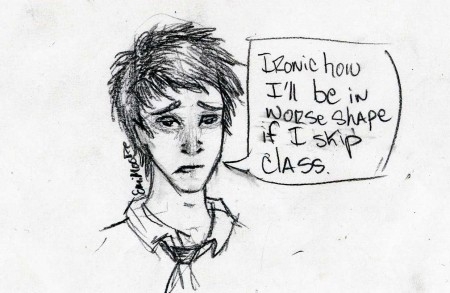 Ironic how
I'll be in
worse shape
if I skip
class.